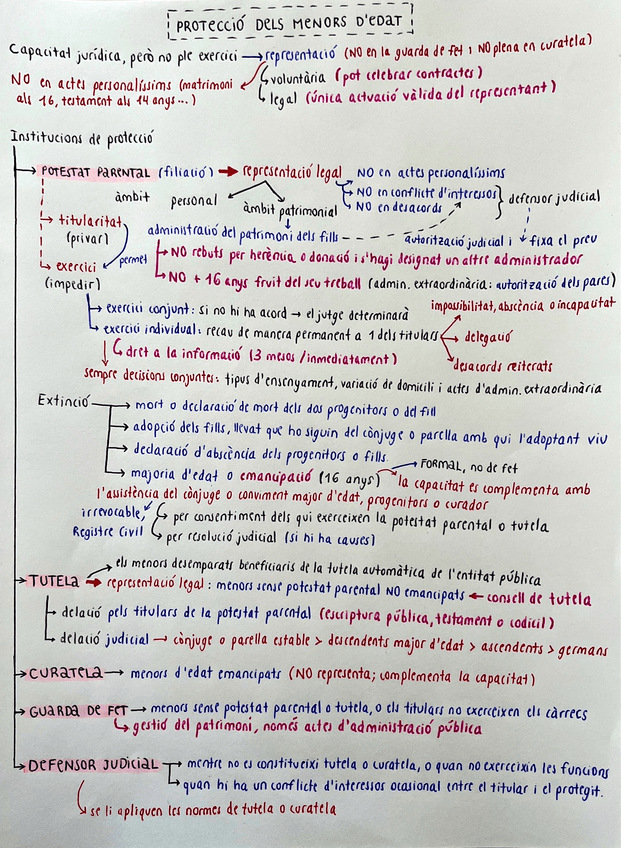 PROTECCIÓ DELS MENORS D'EDAT
Capacitat jurídica, però no ple exercici → representació (NO en la guarda de fet i NO plena en curatela)
NO en actes personalíssims (matrimoni
als 16, testament als 14 anys...)
voluntària (pot celebrar contractes)
legal (única actuació vàlida del representant)
Institucions de protecció
POTESTAT PARENTAL (filiació) → representació legal
NO en actes personalíssims
NO en conflicte d'interessos
NO en desacords
defensor judicial
àmbit personal
àmbit patrimonial
titularitat
(privar)
administració del patrimoni dels fills
autorització judicial i fixa el preu
permet
NO rebuts per herència o donació i s'hagi designat un altre administrador
exercici
(impedir)
NO + 16 anys fruit del seu treball (admin. extraordinària: autorització dels pares)
exercici conjunt: si no hi ha acord → el jutge determinarà
impossibilitat, abscència o incapacitat
exercici individual: recau de manera permanent a 1 dels titulars
delegació
dret a la informació (3 mesos/inmediatament)
desacords reiterats
sempre decisions conjuntes: tipus d'ensenyament, variació de domicili i actes d'admin. extraordinària
Extinció
mort o declaració de mort dels dos progenitors o del fill
adopció dels fills, llevat que ho siguin del cònjuge o parella amb qui l'adoptant viu
declaració d'abscència dels progenitors o fills
majoria d'edat o emancipació (16 anys)
FORMAL, no de fet
la capacitat es complementa amb
l'assistència del cònjuge o convivent major d'edat, progenitors o curador
irrevocable,
Registre Civil
per consentiment dels qui exerceixen la potestat parental o tutela
per resolució judicial (si hi ha causes)
els menors desemparats beneficiaris de la tutela automàtica de l'entitat pública
TUTELA → representació legal: menors sense potestat parental NO emancipats ← consell de tutela
delació pels titulars de la potestat parental (escriptura pública, testament o codicil)
delació judicial → cònjuge o parella estable > descendents major d'edat > ascendents > germans
CURATELA → menors d'edat emancipats (NO representa; complementa la capacitat)
GUARDA DE FET → menors sense potestat parental o tutela, o els titulars no exerceixen els càrrecs
gestió del patrimoni, només actes d'administració pública
DEFENSOR JUDICIAL → mentre no es constitueixi tutela o curatela, o quan no exerceixin les funcions
quan hi ha un conflicte d'interessos ocasional entre el titular i el protegit.
se li apliquen les normes de tutela o curatela